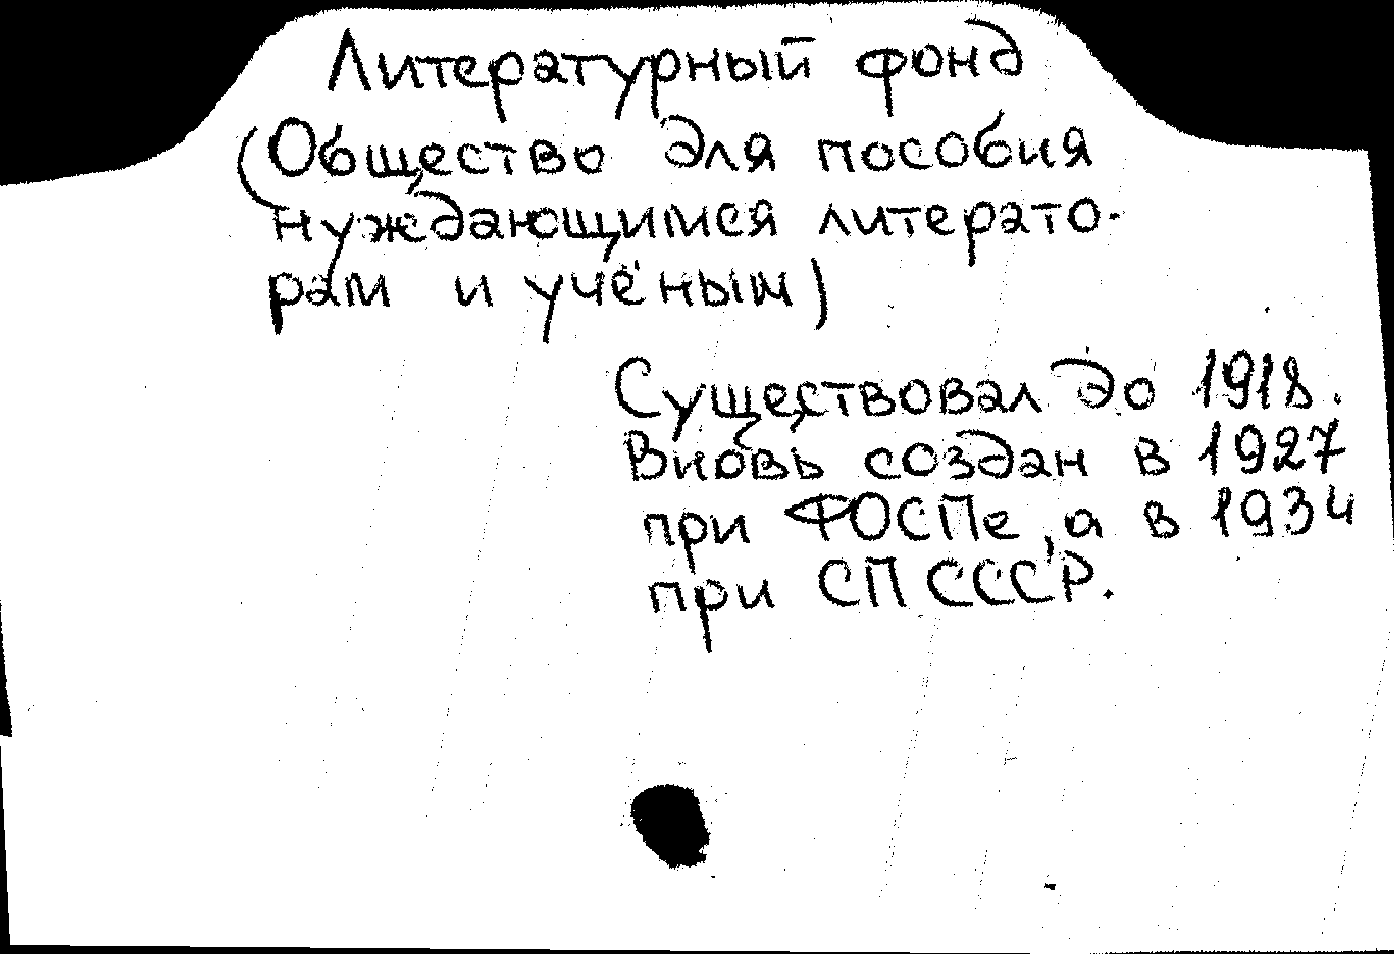 Литературный фонд
(Общество для пособия
нуждающимся литерато-
рам и учёным)
Существовал до 1918.
Вновь создан в 1927
при ФОСПе, а в 1934
при СП СССР.